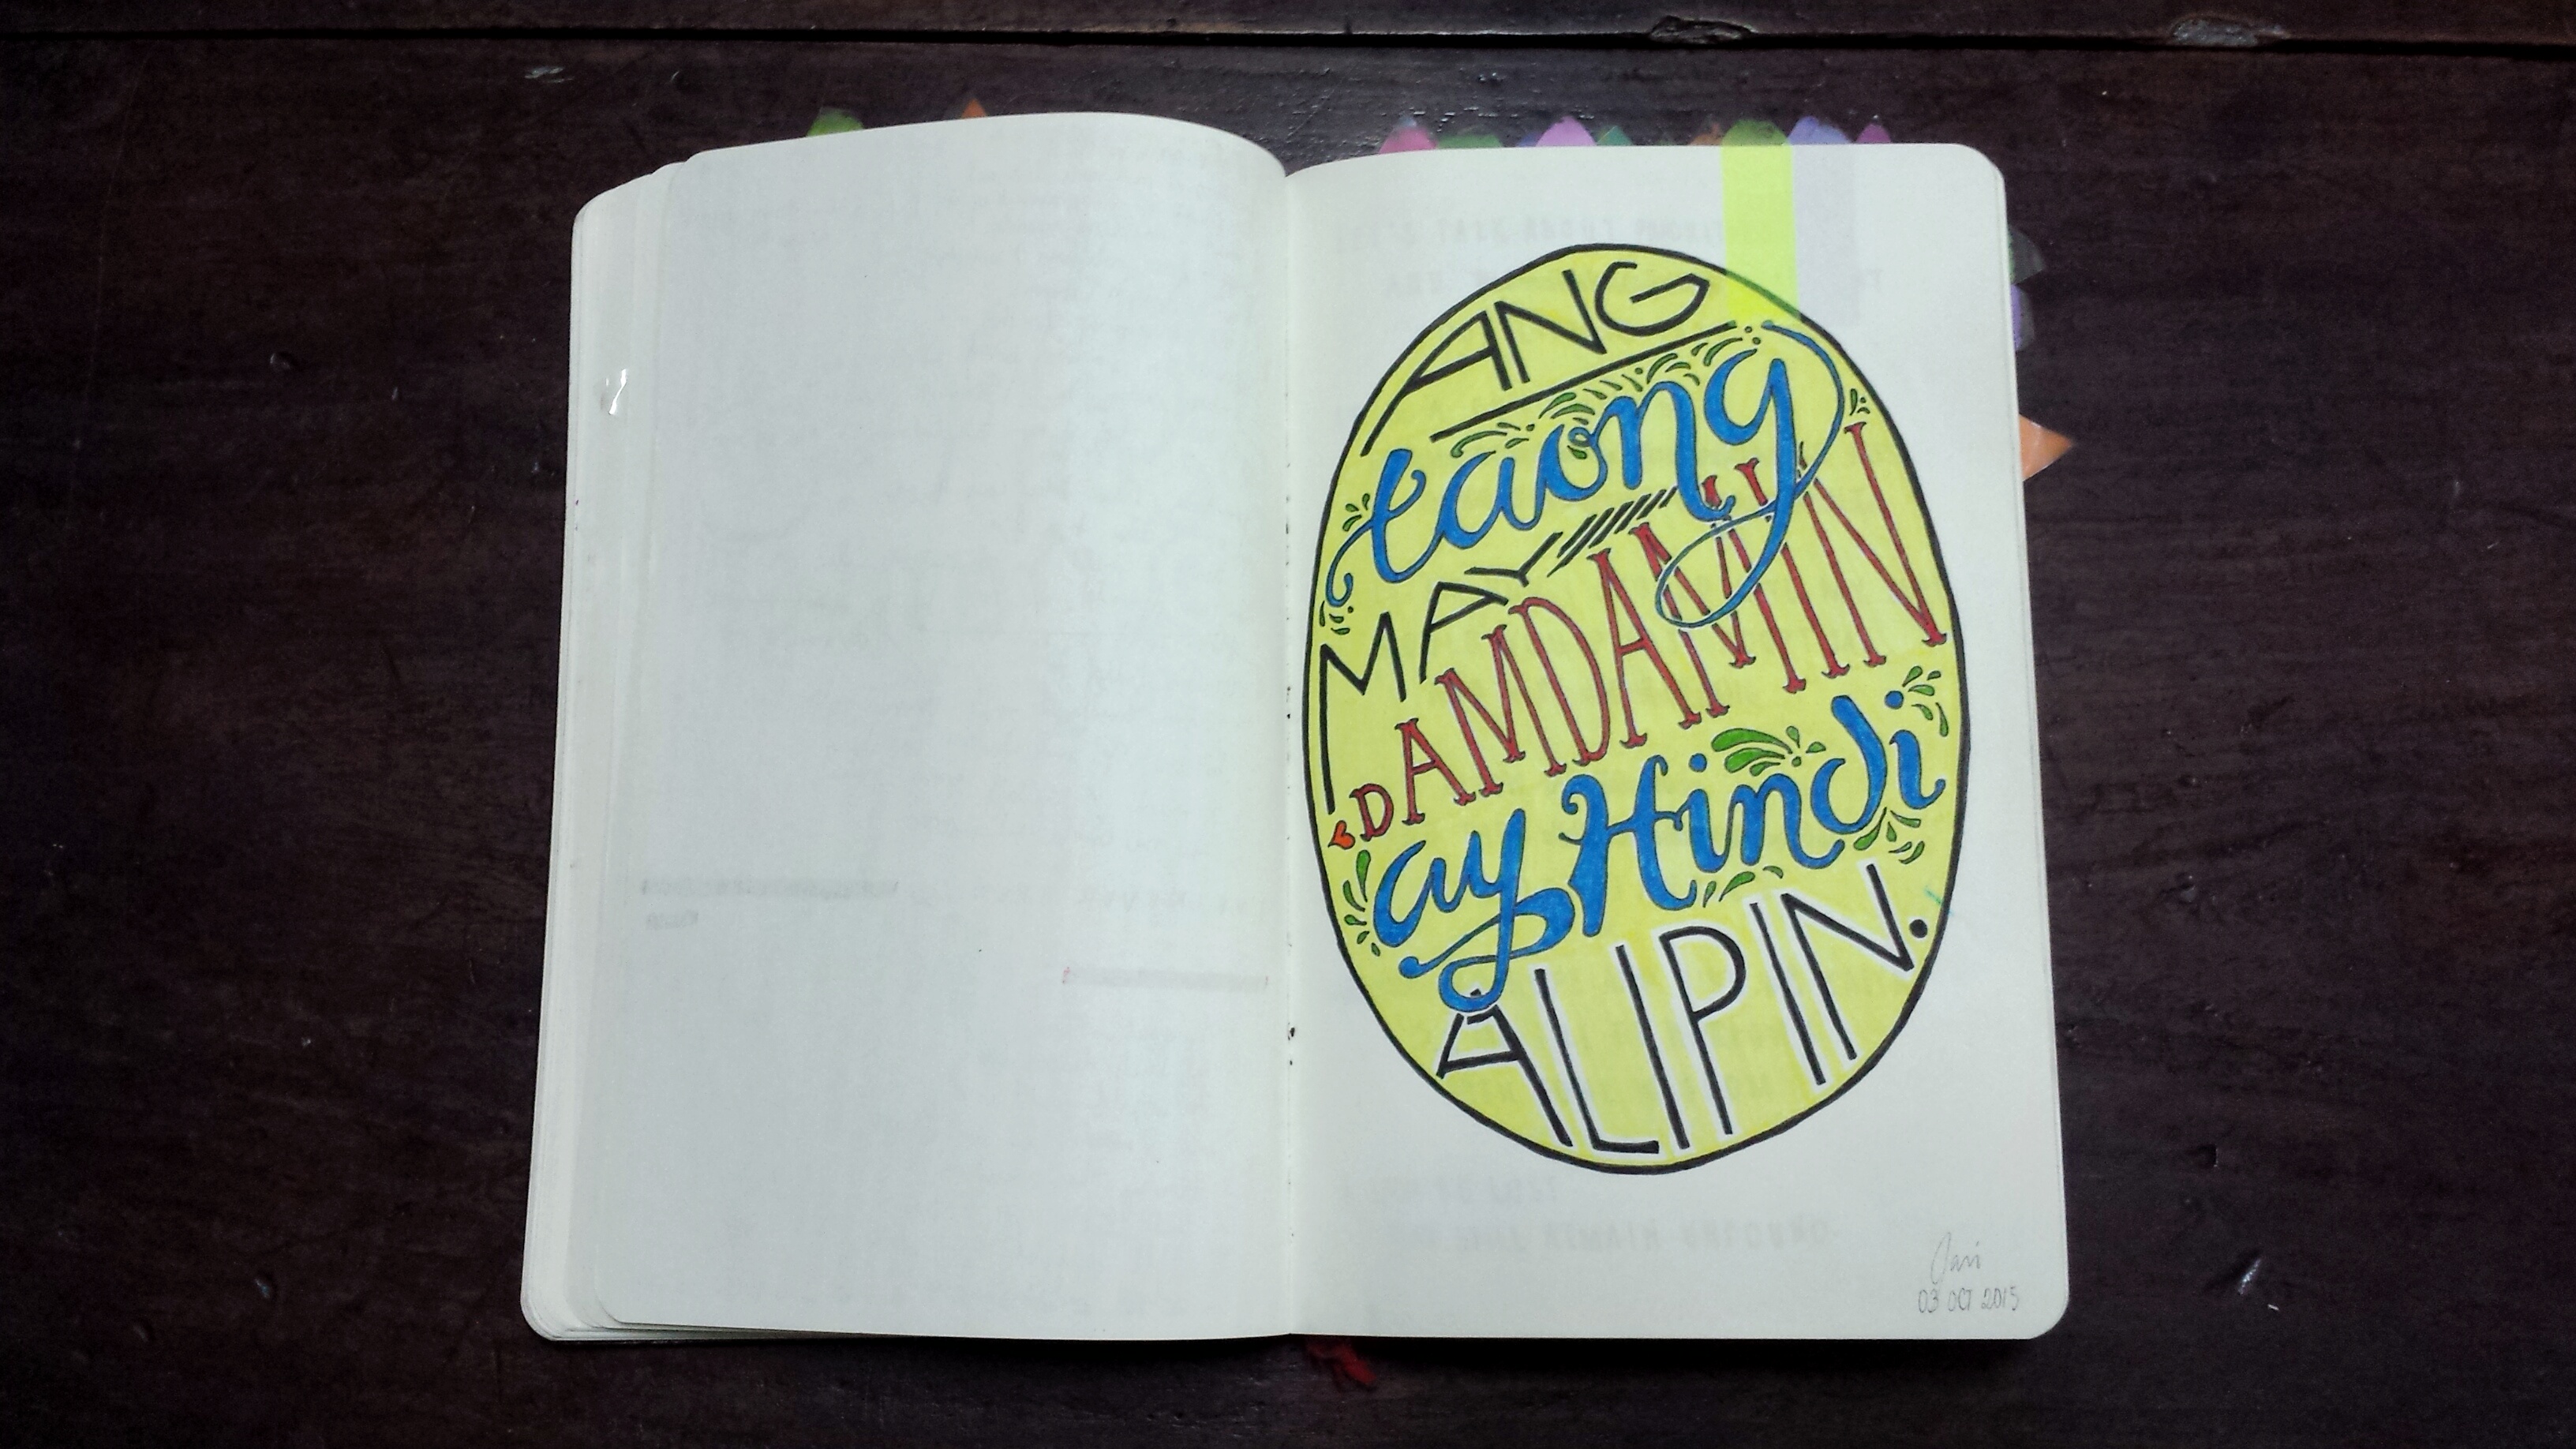 ANG
taong
MAY
DAMDAMIN
ay Hindi
ALIPIN.
03 OCT 2015